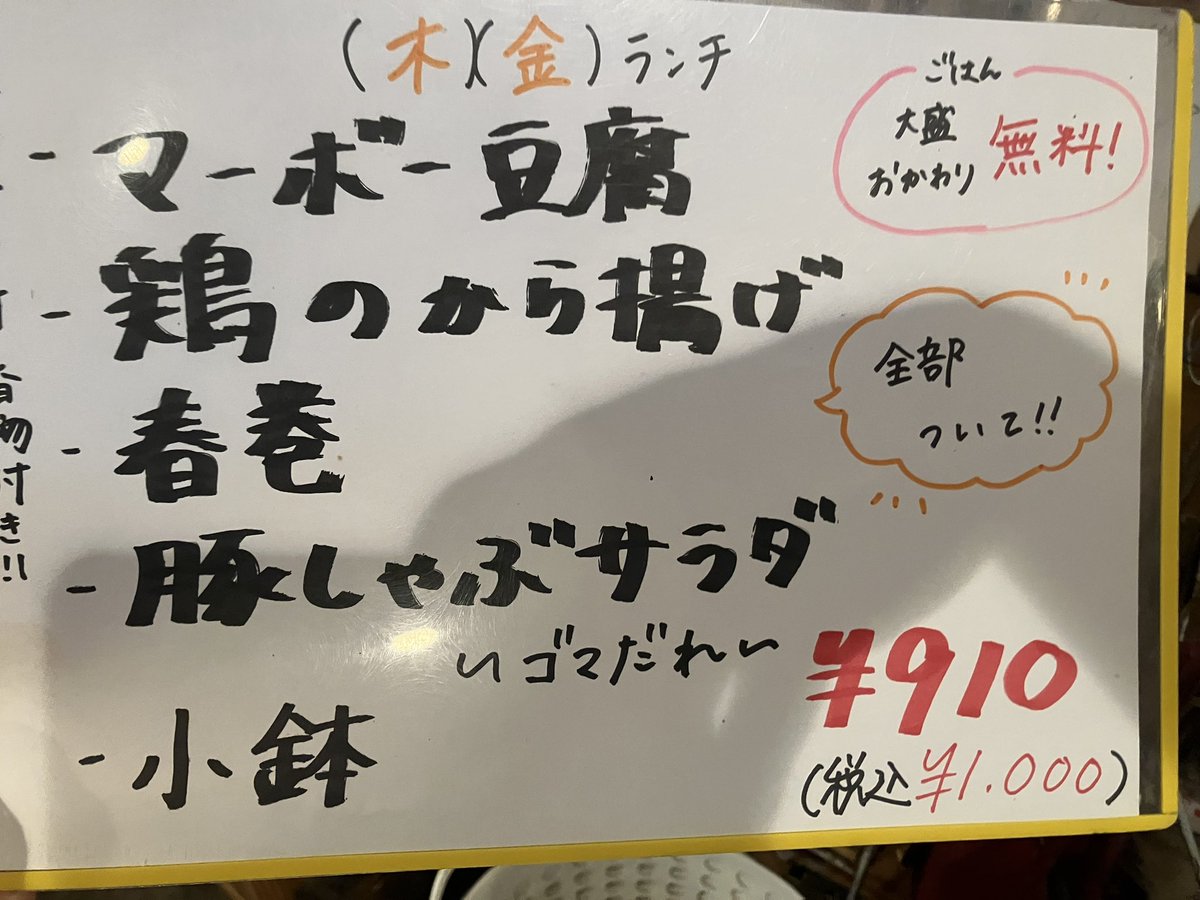 (木)(金)ランチ
- マーボー豆腐
- 鶏のから揚げ
- 春巻
- 豚しゃぶサラダ
〃ゴマだれ〃
- 小鉢
ごはん
大盛
おかわり
無料!
全部
ついて!!
¥910
(税込¥1.000)
物付き!!